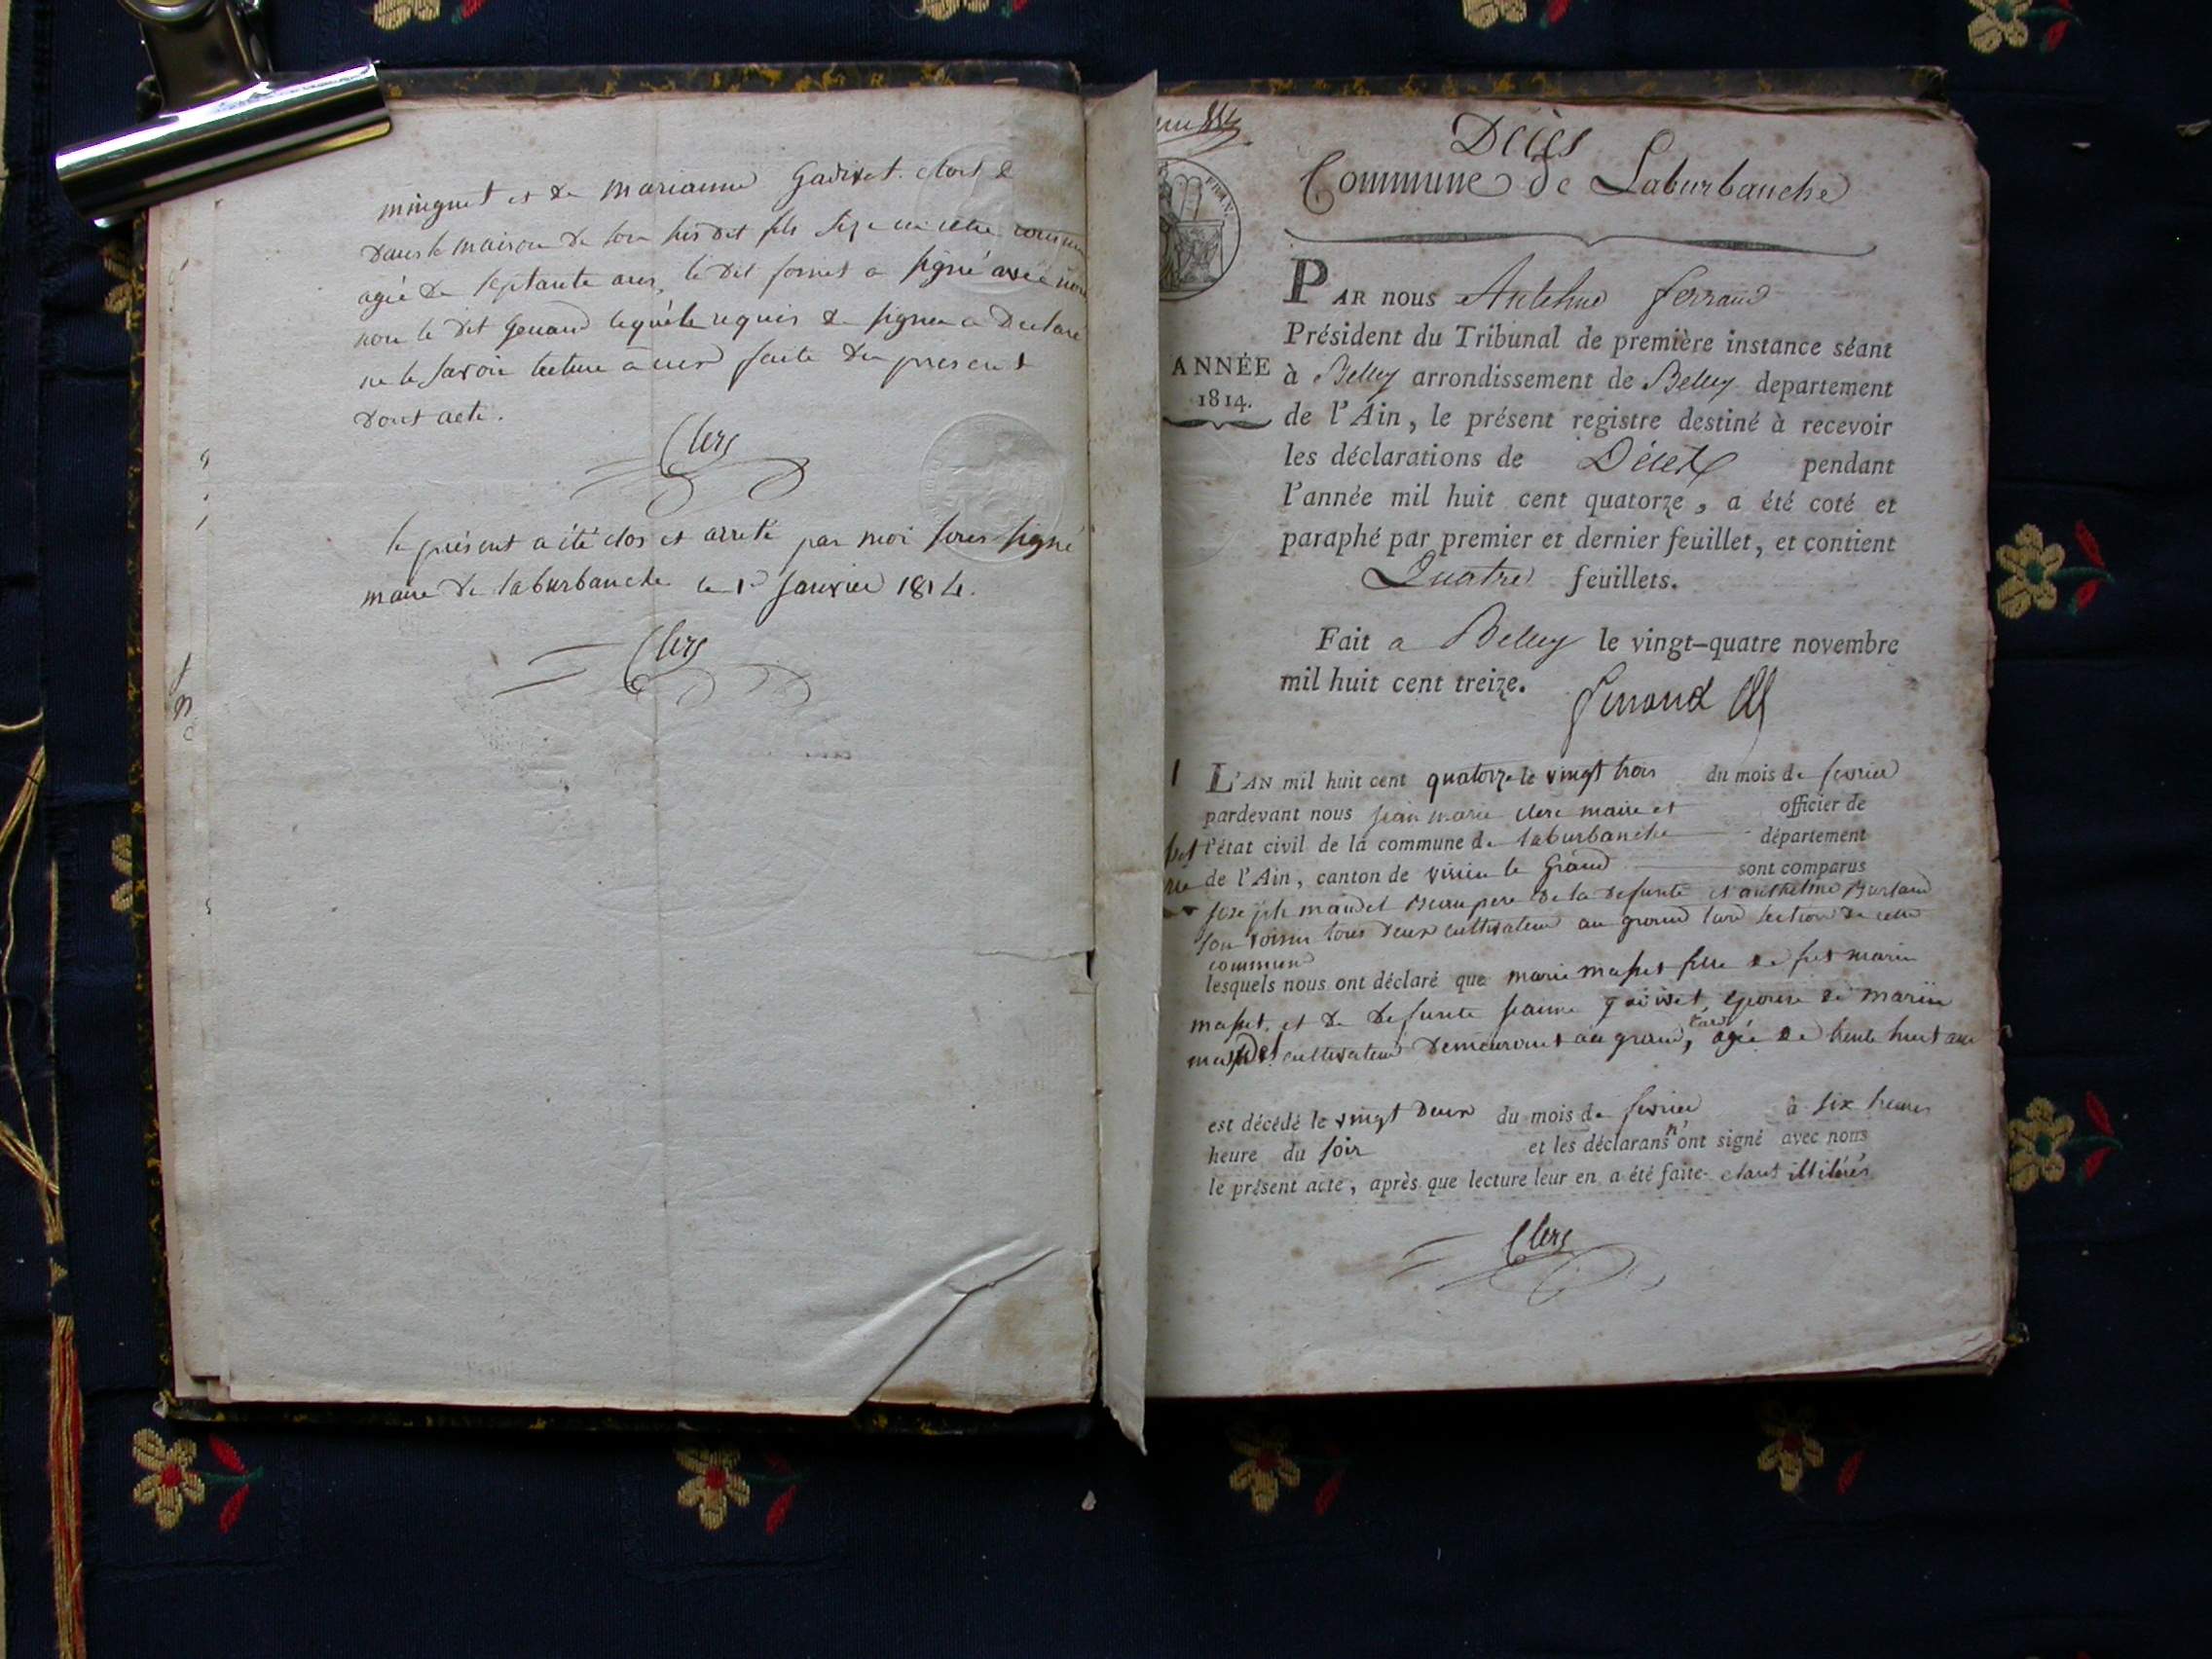 minguet et de marianne Gadivet. etoit
dans la maison de son dit fils size en cette commune
agée de septante ans, le dit a signé avec nous
non le dit genand lequel requis de signer a declaré
ne le savoir lecture a eux faite du present
dont acte.
Clerc
le présent a été clos et arreté par moi sous signé
maire de laburbanche le 1er Janvier 1814.
Clerc
Décès
Commune de Laburbanche
FRAN.
ANNÉE
1814.
PAR nous Antelme ferrand
Président du Tribunal de première instance séant
à Belley arrondissement de Belley departement
de l'Ain, le présent registre destiné à recevoir
les déclarations de Décès pendant
l'année mil huit cent quatorze, a été coté et
paraphé par premier et dernier feuillet, et contient
Quatre feuillets.
Fait a Belley le vingt-quatre novembre
mil huit cent treize.
1 L'AN mil huit cent quatorze le vingt trois du mois de fevrier
pardevant nous jean marie clerc maire et officier de
l'état civil de la commune de laburbanche département
de l'Ain, canton de virieu le Grand sont comparus
joseph maudet beaupere de la defunte et anthelme Burland
son voisin tous deux cultivateur au grand section de cette
commune
lesquels nous ont déclaré que marie masset fille de feu marin
masset, et de defunte jeanne gadivet, epouse de marin
cultivateur demeurant au grand, agée de trente huit ans
est décédé le vingt deux du mois de fevrier à six heures
heure du soir et les déclarans n'ont signé avec nous
le présent acte, après que lecture leur en a été faite. etant illiterés
Clerc